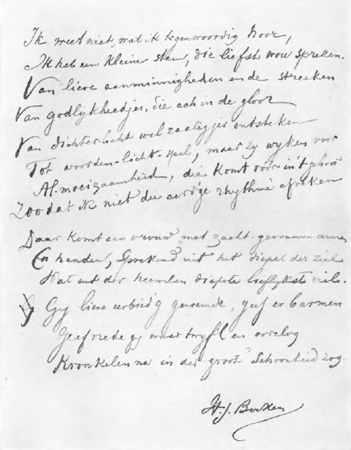 Ik weet niet, wat ik tegenwoordig hoor,
Ik heb een kleine stem, die liefst wou spreken
Van lieve aanminnigheden en de streeken
Van godlykheedjes, die ach in de gloor
Van dichterlicht wel zaeligjes ontsteken
Tot woorden-licht-spel, maar zy wyken voor
Al-moeizaamheid, die komt vóór in't gloor
Zoodat ik niet die aardige rhythme afreken
Daar komt een vrouw met zacht gevouwen armen
En handen, sprekend uit het diepst der ziel
Dat uit der heemlen diepste lieflykst viel.
Gy lieve eerbiedig genoemde, geef erbarmen
Geef vrede gy waar twyfel en oorlog
Kronkelen na in der groot' Schoonheid zog.
H. J. Boeken